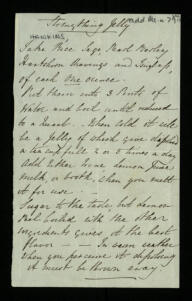 Strengthning Jelly
HAWKINS
Take Rice Sago Pearl Barley
Hartshorn Shavings and
of each One ounce.
Put these into 3 Pints of
Water and boil until reduced
to a Quart. When Cold it will
be a Jelly of which give
a tea cup full 2 or 3 times a day
add Either Wine Lemon
milk, or broth, when you melt
it for use.
Sugar to the taste but Lemon
Peel boiled with the other
Ingredients gives it the best
flavor — In warm weather
when you perceive it dissolving
it must be thrown away